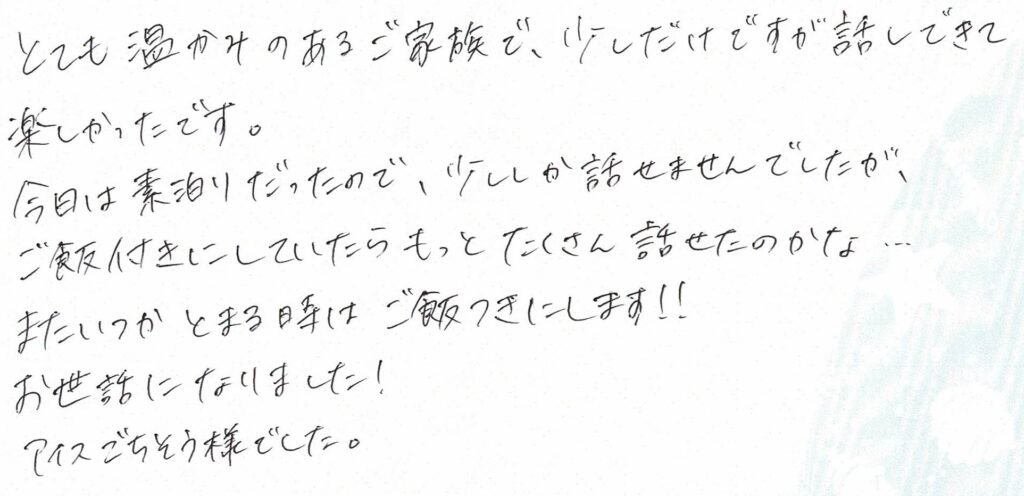 とても温かみのあるご家族で、少しだけですが話しできて
楽しかったです。
今日は素泊りだったので、少ししか話せませんでしたが、
ご飯付きにしていたらもっとたくさん話せたのかな…
またいつかとまる時はご飯つきにします!!
お世話になりました!
アイスごちそう様でした。